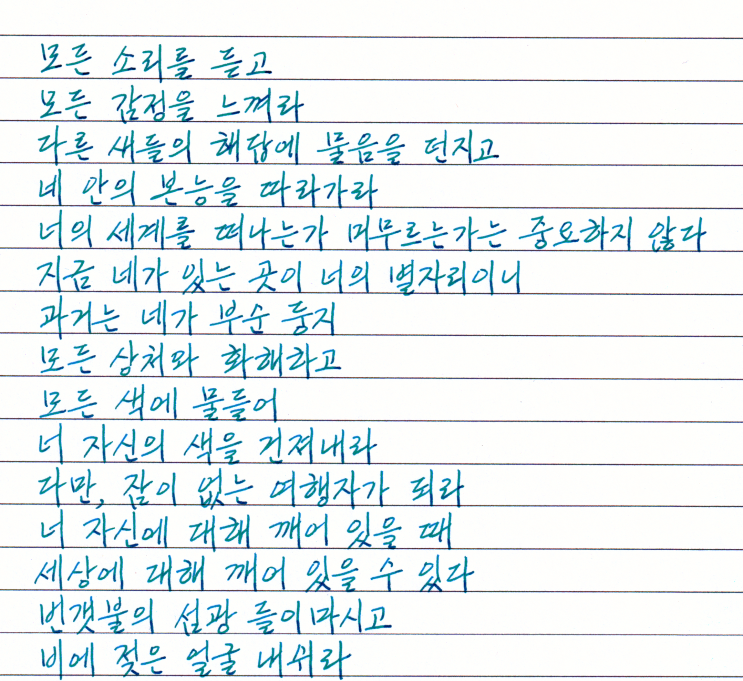 모든 소리를 듣고
모든 감정을 느껴라
다른 새들의 해답에 물음을 던지고
네 안의 본능을 따라가라
너의 세계를 떠나는가 머무르는가는 중요하지 않다
지금 네가 있는 곳이 너의 별자리이니
과거는 네가 부순 둥지
모든 상처와 화해하고
모든 색에 물들어
너 자신의 색을 건져내라
다만, 잠이 없는 여행자가 되라
너 자신에 대해 깨어 있을 때
세상에 대해 깨어 있을 수 있다
번갯불의 섬광 들이마시고
비에 젖은 얼굴 내쉬라